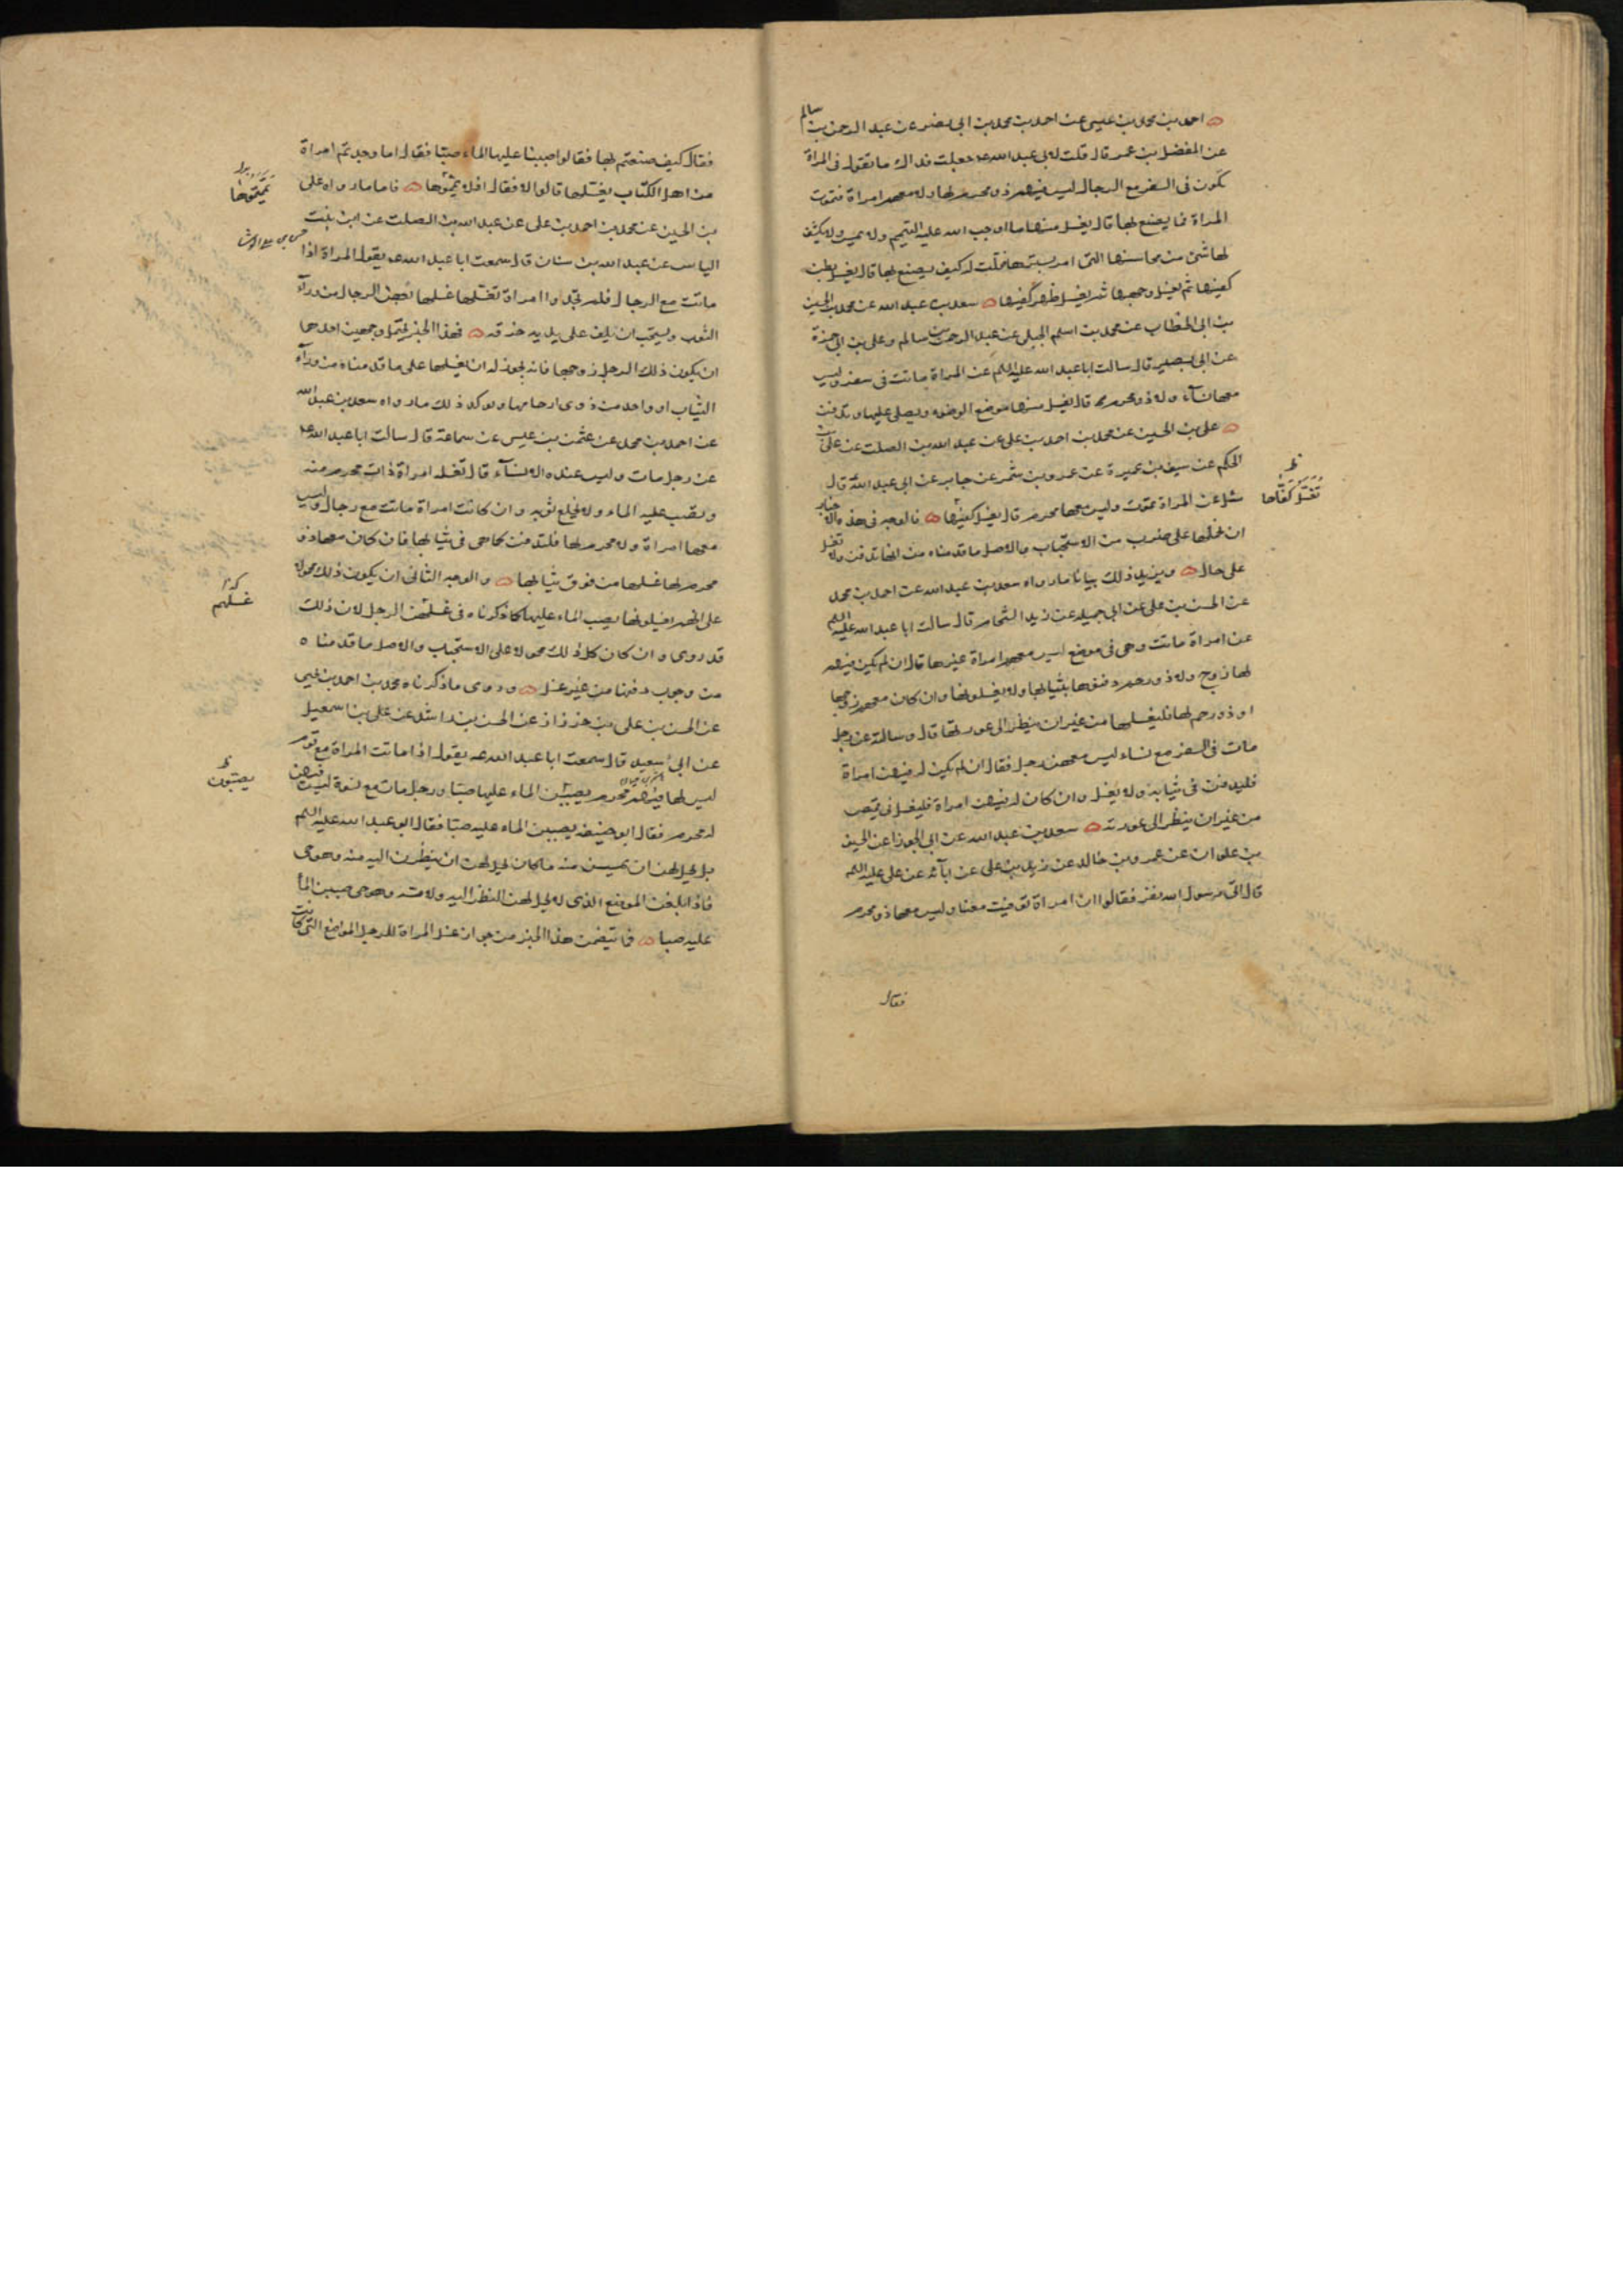 احمد بن محمد بن عيسى عن احمد بن محمد بن ابى نصر عن عبد الرحمن بن سالم
عن المفضل بن عمر قال قلت لابى عبد الله عه جعلت فداك ما تقول فى المراة
تكون فى السفر مع الرجال ليس فيهم ذو محرم لها ولا معهم امراة فتموت
المراة فما يصنع لها قال يغسل منها ما اوجب الله عليه التيمم ولا يمس ولا يكشف
لها شئ من محاسنها التى امر بسترها فقلت له كيف يصنع بها قال يغسل بطن
كفيها ثم يغسل وجهها ثم يغسل ظهر كفيها سعد بن عبد الله عن محمد بن الحسين
بن ابى الخطاب عن محمد بن اسلم الجبلى عن عبد الرحمن بن سالم وعلى بن ابى حمزة
عن ابى بصير قال سالت ابا عبد الله عليه السلم عن المراة ماتت فى سفر وليس
معها نسآء ولا ذو محرم قال يغسل منها موضع الوضوء ويصلى عليها وتدفن
على بن الحسين عن محمد بن احمد بن على عن عبد الله بن الصلت عن على بن
الحكم عن سيف بن عميرة عن عمرو بن شمر عن جابر عن ابى عبد الله قال
سئل عن المراة تموت وليس معها محرم قال يغسل كفيها فالوجه فى هذه الاخبار
ان نحملها على ضرب من الاستحباب والاصل ما قدمناه من انها تدفن ولا تغسل
على حال ويزيد ذلك بيانا ما رواه سعد بن عبد الله عن احمد بن محمد
عن الحسن بن على عن ابى جميلة عن زيد الشحام قال سالت ابا عبد الله عليه السلم
عن امراة ماتت وهى فى موضع ليس معهم امراة غيرها قال ان لم يكن فيهم
لها زوج ولا ذو رحم دفنوها بثيابها ولا يغسلونها وان كان معهم زوجها
او ذو رحم لها فليغسلها من غير ان ينظر الى عورتها قال وسالته عن رجل
مات فى السفر مع نساء ليس معهن رجل فقال ان لم يكن له فيهن امراة
فليدفن فى ثيابه ولا يغسل وان كان له فيهن امراة فليغسل فى قميص
من غير ان ينظر الى عورته سعد بن عبد الله عن ابى الجوزا عن الحسين
بن علوان عن عمرو بن خالد عن زيد بن على عن آبآئه عن على عليه السلم
قال اتى رسول الله نفر فقالوا ان امراة توفيت معنا وليس معها ذو محرم
فقال
تغسل كفاها
فقال كيف صنعتم بها فقالوا صببنا عليها الماء صبّا فقال اما وجدتم امراة
من اهل الكتاب يغسلها قالوا لا فقال افلا يمّموها فاما ما رواه على
بن الحسين عن محمد بن احمد بن على عن عبد الله بن الصلت عن ابن بنت
الياس عن عبد الله بن سنان قال سمعت ابا عبد الله عه يقول المراة اذا
ماتت مع الرجال فلم تجدوا امراة تغسلها غسلها بعض الرجال من ورآء
الثوب ويستحب ان يلف على يديه خرقه فهذا الخبر يحتمل وجهين احدهما
ان يكون ذلك الرجل زوجها فانه يجوز له ان يغسلها على ما قدمناه من ورآء
الثياب او واحد من ذوى ارحامها يوكد ذلك ما رواه سعد بن عبد الله
عن احمد بن محمد عن عثمن بن عيسى عن سماعة قال سالت ابا عبد الله عه
عن رجل مات وليس عنده الا نسآء قال تغسله امراة ذات محرم منه
وتصب عليه الماء ولا تخلع ثوبه وان كانت امراة ماتت مع رجال وليس
معها امراة ولا محرم لها فلتدفن كما هى فى ثيابها فان كان معها ذو
محرم لها غسلها من فوق ثيابها والوجه الثانى ان يكون ذلك محمولا
على انهم يغسلونها بصب الماء عليها كما ذكرناه فى غسلهن الرجل لان ذلك
قد روى وان كان كل ذلك محمولا على الاستحباب والاصل ما قدمناه
من وجوب دفنها من غير غسل وروى ما ذكرناه محمد بن احمد بن يحيى
عن الحسن بن على بن خرزاذ عن الحسن بن راشد عن على بن اسمعيل
عن ابى سعيد قال سمعت ابا عبد الله عه يقول اذا ماتت المراة مع قوم
ليس لها فيهم محرم يصببن الماء عليها صبّا ورجل مات مع نسوة ليس فيهن
له محرم فقال ابو حنيفه يصببن الماء عليه صبّا فقال ابو عبد الله عليه السلم
بل يحل لهن ان يمسسن منه ما كان يحل لهن ان ينظرن اليه منه وهو حى
فاذا بلغن الموضع الذى لا يحل لهن النظر اليه ولا مسه وهو حى صببن الماء
عليه صبا فما تضمن هذا الخبر من جواز غسل المراة للرجل المواضع التى كانت
يمّمتموها
غسلهم
يصبّون